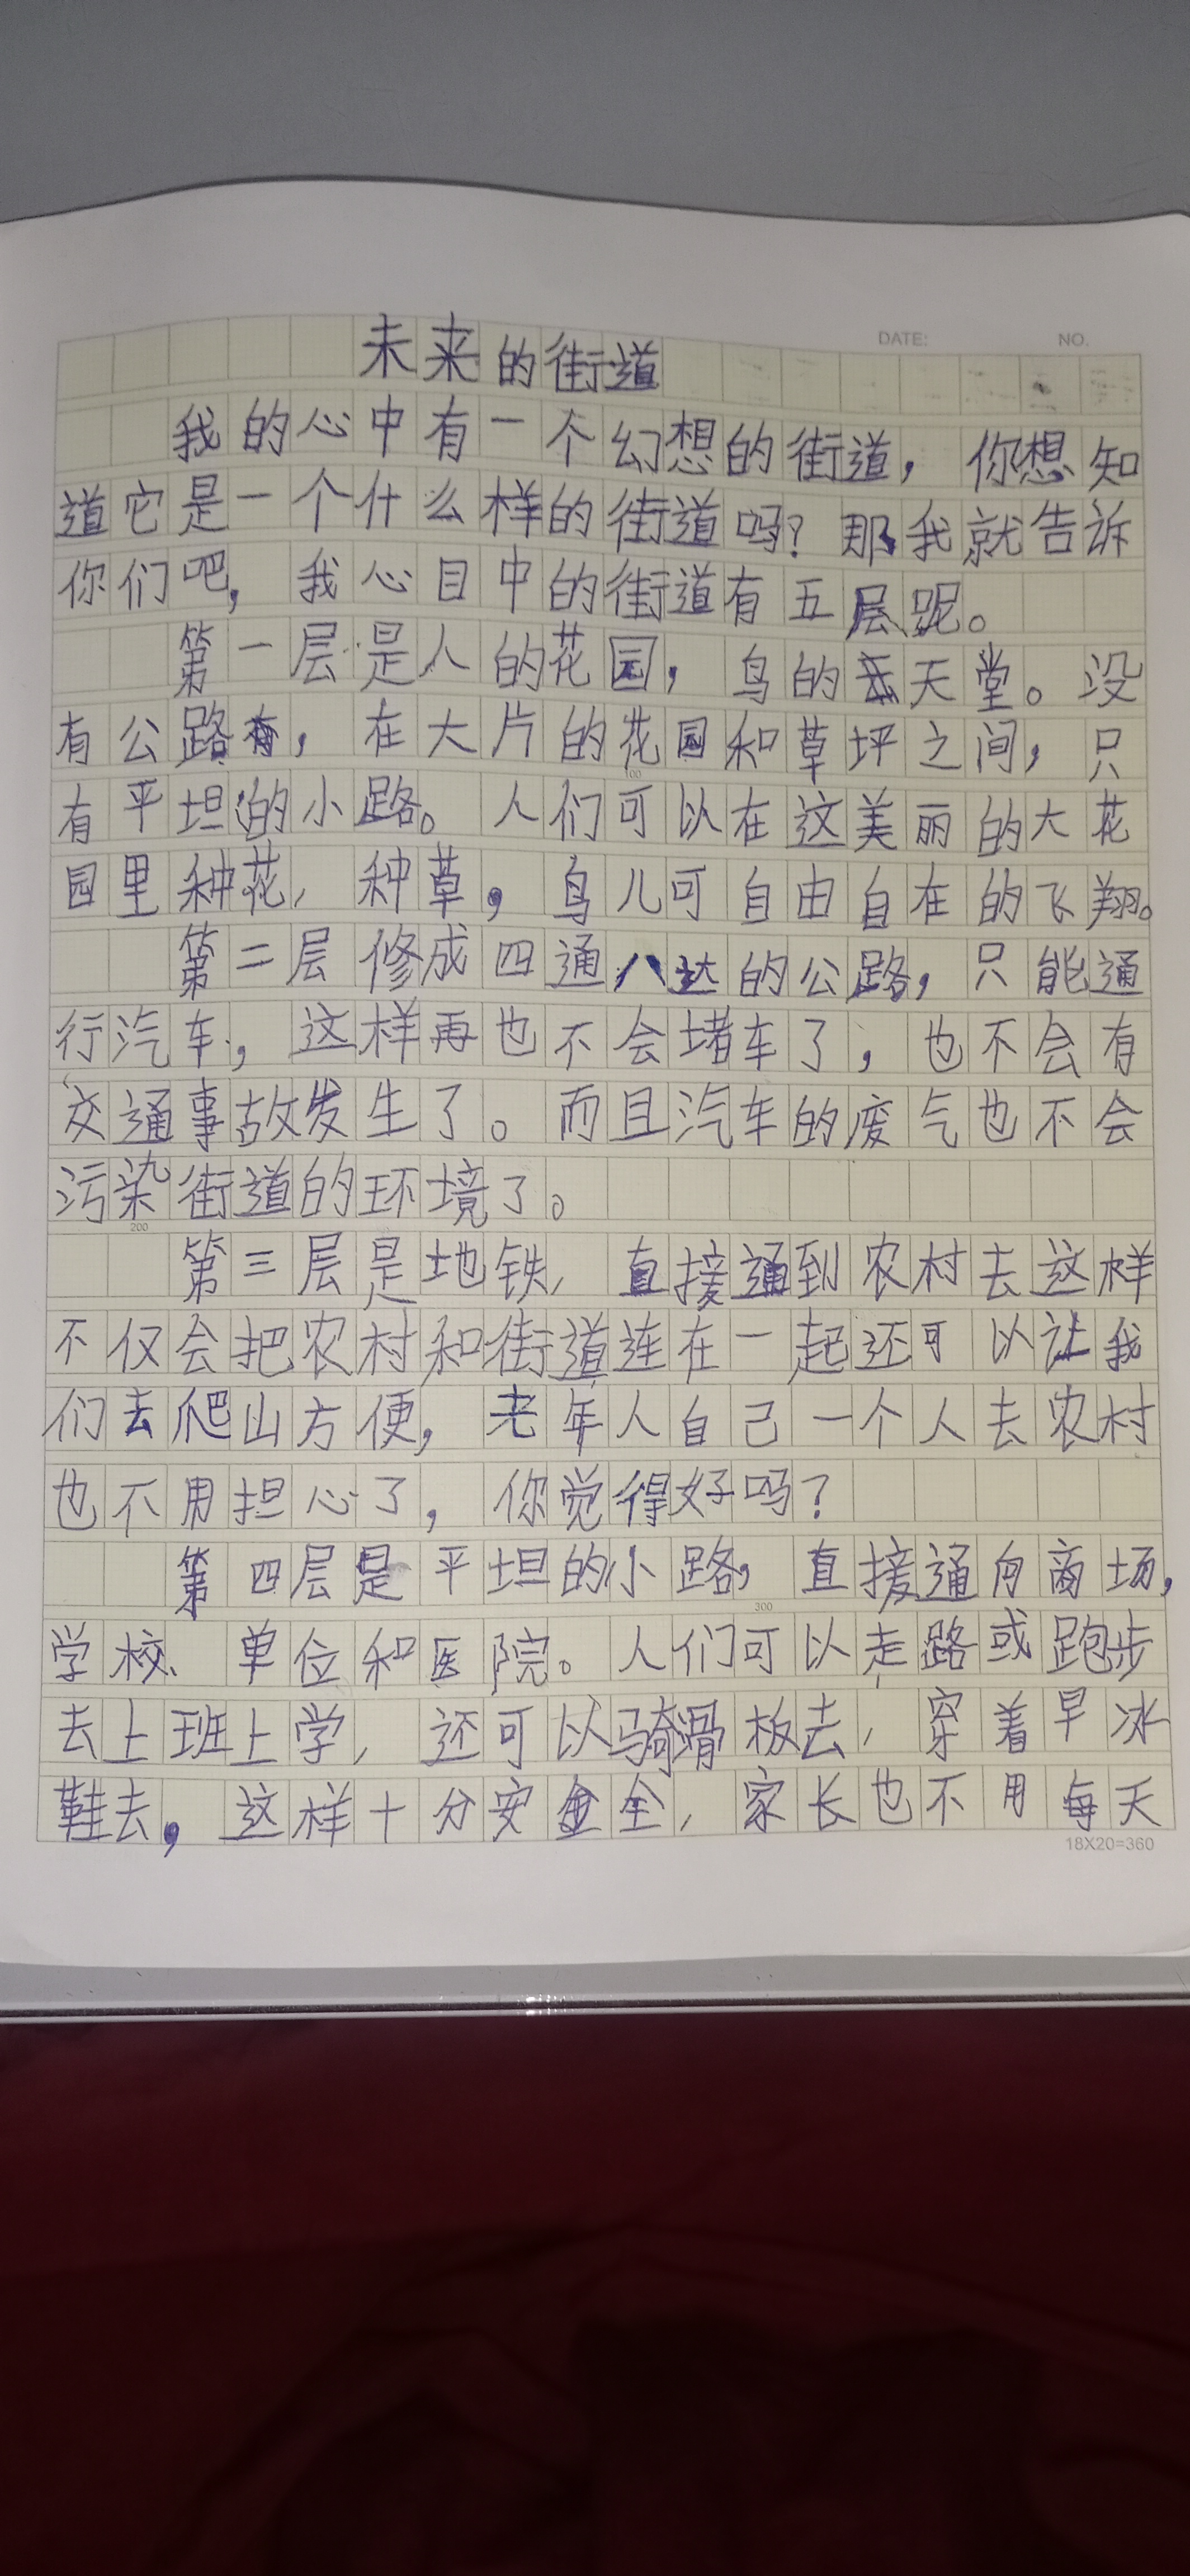 DATE: NO.
未来的街道
我的心中有一个幻想的街道，你想知
道它是一个什么样的街道吗？那我就告诉
你们吧，我心目中的街道有五层呢。
第一层是人的花园，鸟的天堂。没
有公路，在大片的花园和草坪之间，只
有平坦的小路。人们可以在这美丽的大花
园里种花，种草，鸟儿可自由自在的飞翔。
第二层修成四通八达的公路，只能通
行汽车，这样再也不会堵车了，也不会有
交通事故发生了。而且汽车的废气也不会
污染街道的环境了。
200
第三层是地铁，直接通到农村去这样
不仅会把农村和街道连在一起还可以让我
们去爬山方便，老年人自己一个人去农村
也不用担心了，你觉得好吗？
第四层是平坦的小路，直接通向商场，
300
学校、单位和医院。人们可以走路或跑步
去上班上学，还可以骑滑板去，穿着早冰
鞋去，这样十分安全，家长也不用每天
18X20=360